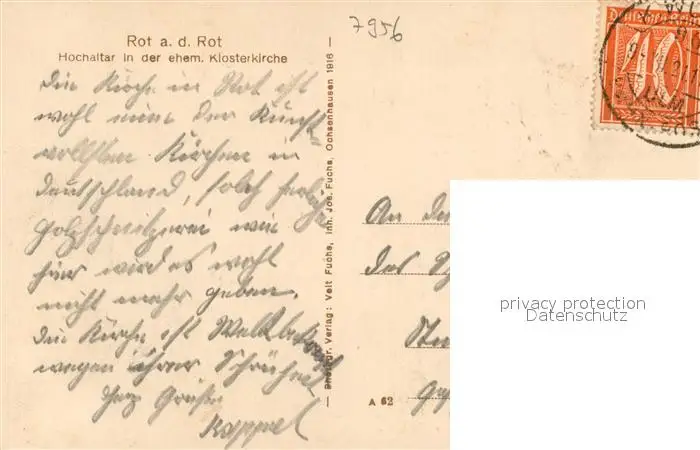 7956
Rot a. d. Rot
Hochaltar in der ehem. Klosterkirche
Die Kirche in Rot ist
wohl eine der Kunst-
vollsten Kirchen in
Deutschland, solch
Holzschnitzerei wie
hier wird es wohl
nicht mehr geben.
Die Kirche ist Weltbekannt
wegen ihrer Schönheit
Herz Grüße
Kappel
Photogr. Verlag: Veit Fuchs, Inh. Jos. Fuchs, Ochsenhausen 1916
Deutsches Reich
10
ULM
An
des
A 62
privacy protection
Datenschutz